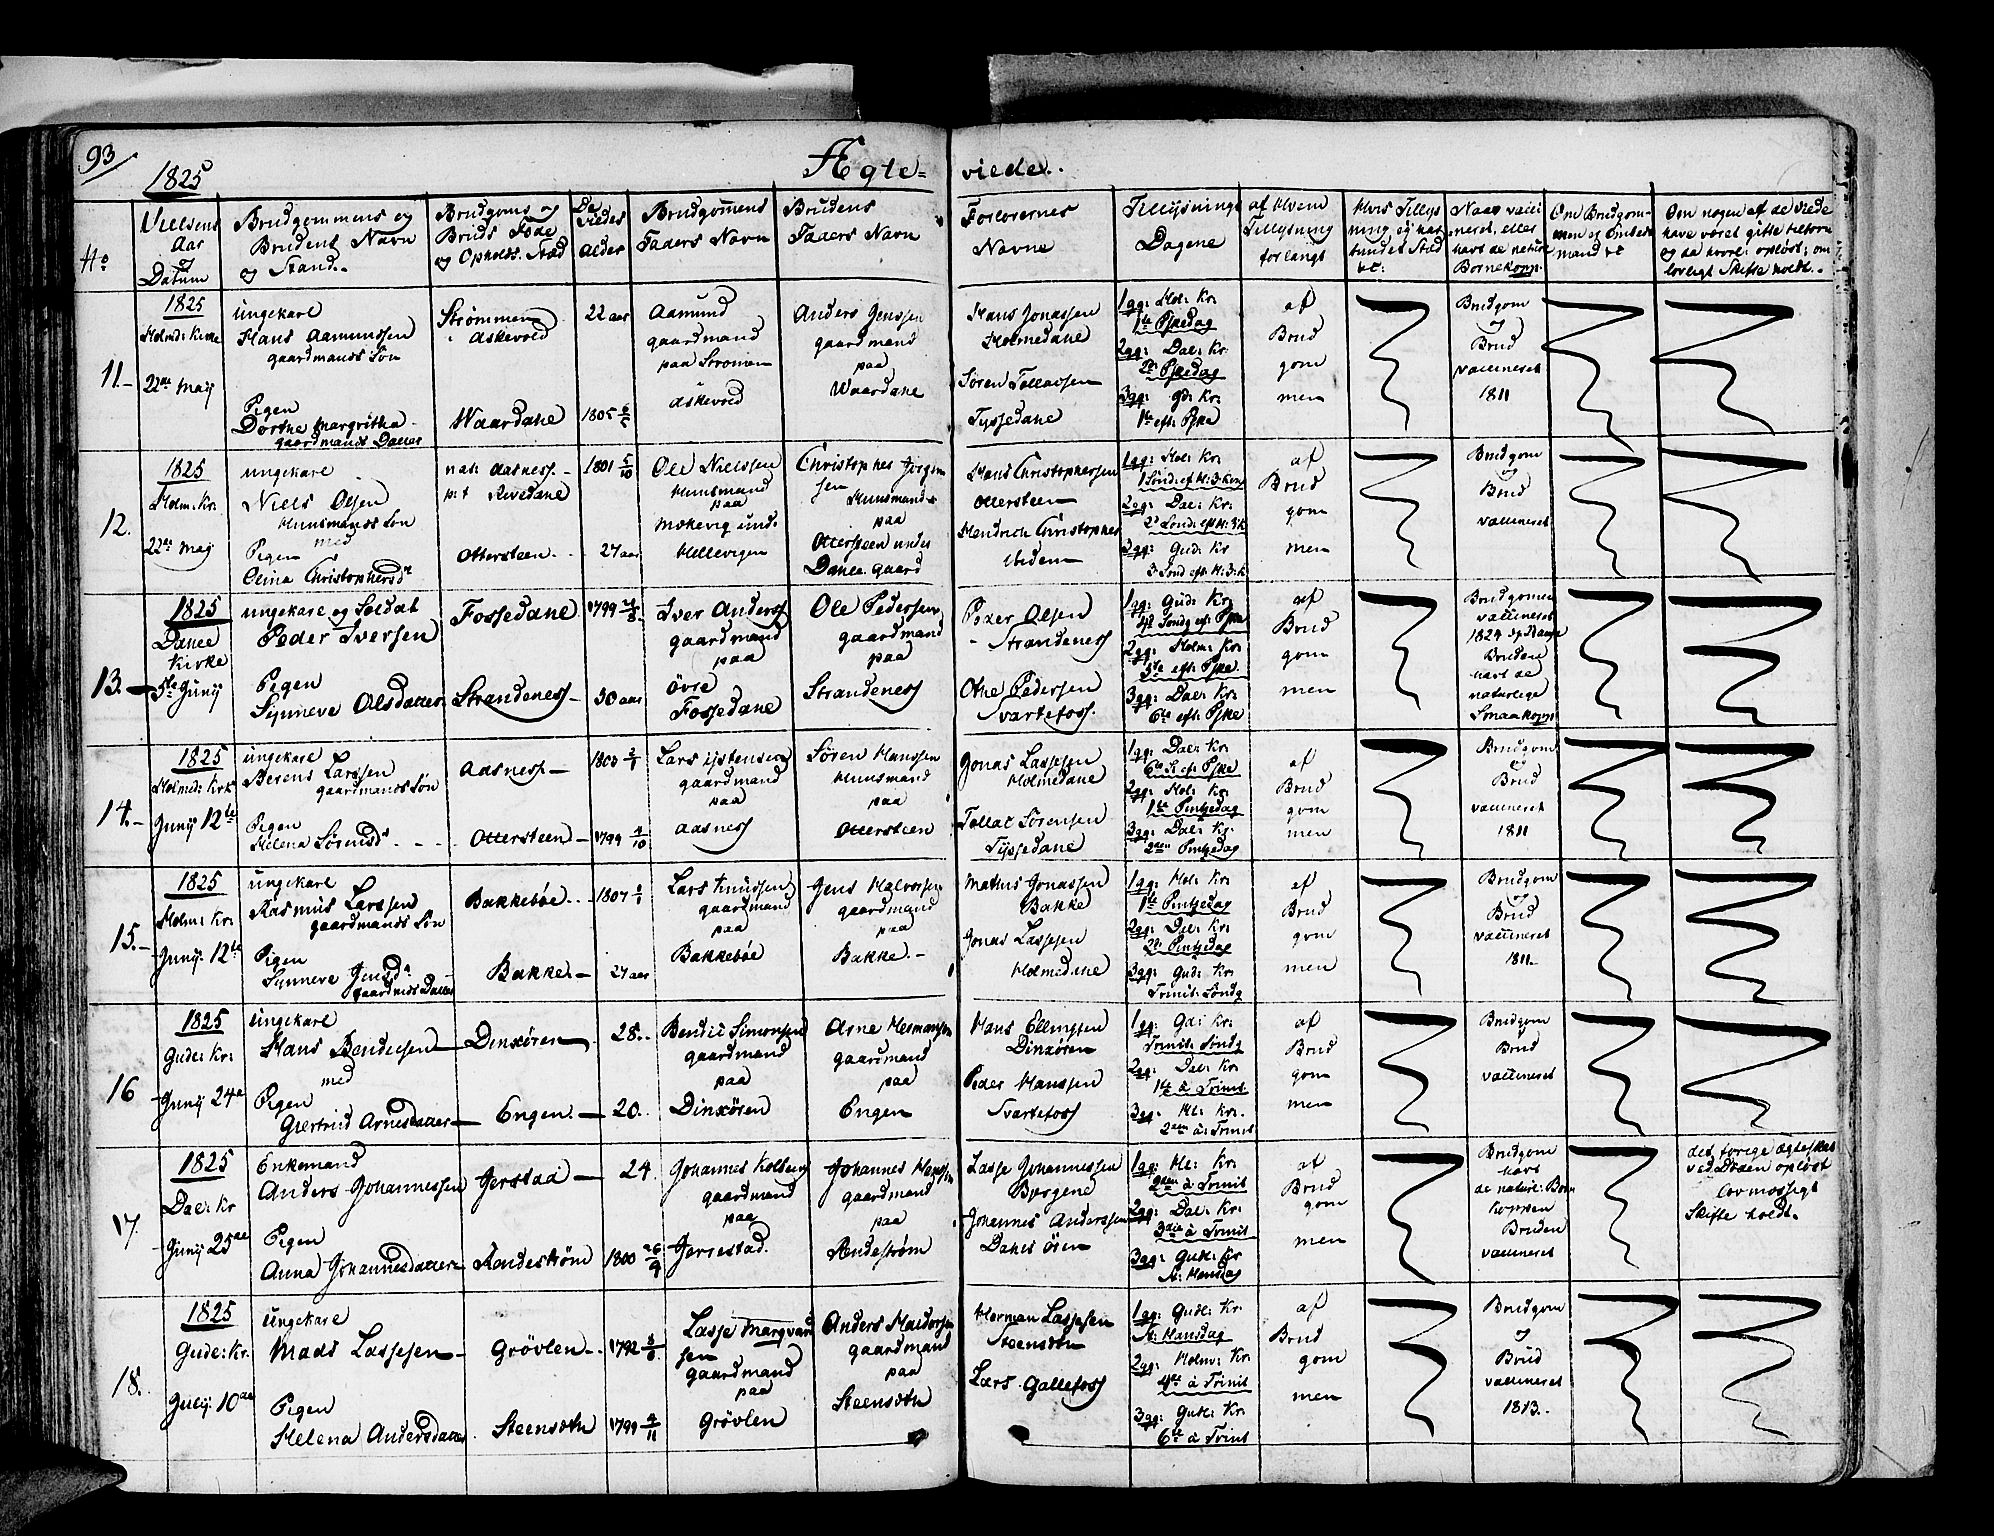 93
1825
Ægte= viede.
No
Vielsens Aar og Datum
Brudgommens og Brudens Navn og Stand.
Brudgoms og Bruds Føde og Opholds. Stæd
De Viedes Alder
Brudgom̅ens Faders Navn
Brudens Faders Navn
Forlovernes Navne
Tillysnings Dagene
af Hvem Tillysning forlangt
Hvis Tillysning ej har fundet Stæd &c:
Naar vacineret, eller havt de naturl Børnekopp:
Om Brudgommen er Embedsmand &c
Om nogen af de Viede have været gifte tilforn og da hvorl: opløst; om lovligt Skifte holdt.
11.
1825
Holmd: Kirke
22de Maij
ungekarl
Hans Aamunssen
gaardmands Søn
Pigen
Dorthe Margritha
gaardmands Datter
Strømmen
i Askevold
Waardahe
22 aar
1805
Aamund
gaardmand
paa Strømmen
Askevold
Anders Jenssen
gaardmand
paa
Waardahe
Hans Jonassen
Holmedahe
Søren Tollassen
Tyssedahe
1gg: Hol: Kr:
1te Pskedag
2gg: Dae: Kr:
2den Pskedag
3gg: gd: Kr:
1te eft: Pske
af
Brud
gom
men
Brudgom
og
Brud
vaccineret
1811
12.
1825
Holm: Kr.
22de Maij
ungekarl
Niels Olsen
Huusmands Søn
med
Pigen
Olina Christophersdr
nat: Aasness.
p:t Rivedahe
Ottersteen
1801 5/10
27 aar
Ole Nielssen
Huusmand
paa
Mækevig und:
Hellevigen
Christopher Jørgenssen
Huusmand
paa
Ottersteen under
Dahe. gaard
Hans Christophersen
Ottersteen
Hendrich Christophersen
ibidem
1gg: Hol: Kr:
1 Sønd: eft H: 3 Kong
2gg: Dae: Kr:
2d Sønd: eft H: 3: K
3gg: Gud: Kr
3 Sønd eft: H: 3: K
af
Brud
gom
men
Brudgom
og
Brud
vaccineret
13.
1825
Dahe
Kirke
5te Junij
ungekarl og Soldat
Peder Iversen
Pigen
Synneve Olsdatter
Fossedahe
Strandeness
1799
30 aar
Iver Anderss
gaardmand
paa
øvre
Fossedahe
Ole Pedersen
gaardmand
paa
Strandeness
Peder Olsen
Strandeness
Othe Pedersen
Svartefoss.
1gg: Gud: Kr:
4de Søndg eft Pske
2gg: Holm: Kr.
5te eft: Pske
3gg: Dae: Kr:
6te eft: Pske
af
Brud
gom
men
Brudgomen
vaccineret
1824
Bruden
havt de
naturlige
Smaakopp:
14.
1825
Holmed: Kirk
Junij 12te
ungekarl
Berens Larssen
gaardmands Søn
Pigen
Helena Sørensdr
Aasness
Ottersteen
1803 2/1
1799 4/10
Lars Ystensen
gaardmand
paa
Aasness
Søren Hanssen
Huusmand
paa
Ottersteen
Jonas Lassesen
Holmedahe
Tollac Sørensen
Tyssedahe
1gg: Dae: Kr:
6te S: eft: Pske
2gg: Hol: Kr:
1te Pintzedag
3gg: Dae: Kr.
2den Pintzedag
af
Brud
gom
men
Brudgom
og
Brud
vaccineret
1811
15.
1825
Holm: Kr.
Junij: 12te
ungekarl
Rasmus Larssen
gaardmands Søn
Pigen
Synneve Jensdr
gaardmds Datter
Bakkebøe
Bakke.
1807
27 aar
Lars Knussen
gaardmand
paa
Bakkebøe
Jens Halvorsen
gaardmand
paa
Bakke.
Mathis Jonassen
Bakke
Jonas Lassesen
Holmedahe
1gg: Hol: Kr.
1te Pintzedag
2gg: Dae: Kr:
2den Pintzedag
3gg: Gud: Kr:
Trinit: Søndg
af
Brud
gom
men
Brudgom
og
Brud
vaccineret
1811.
16
1825
Gude: Kr:
Junij 24de
ungekarl
Hans Bendicsen
med
Pigen
Giertrud Arnesdatter
Dinxøren
Engen.
28.
20.
Bendic Simonsen
gaardmand
paa
Dinxøren
Arne Hermansen
gaardmand
paa
Engen
Hans Ellingsen
Dinxøren
Peder Hanssen
Svartefoss
1gg: Gd: Kr:
Trinit: Søndg
2gg: Dae: Kr:
1te à Trinit
3gg: Hl: Kr.
2den à: Trinit
af
Brud
gom
men
Brudgom
Brud
vaccineret
17.
1825
Dae: Kr
Junij 25de
Enkemand
Anders Johannessen
Pigen
Anna Johannesdatter
Jerstad
Sandestrøm
24.
1800 26/4
Johannes Kolbeins
gaardmand
paa
Jerrestad.
Johannes Hanssen
gaardmand
paa
Sandestrøm
Lasse Johannessen
Bergene
Johannes Anderssen
Dahes Øren
1gg: Hl: Kr:
2den à Trinit
2gg: Dae: Kr:
3die à Trinit
3gg: Gud: Kr
St: Hansdag
af
Brud
gom
men
Brudgom
havt
de naturl: Børn
koppen
Bruden
vaccineret
det forige Ægteskab
ved Døden opløst
Lovmæssigt
Skifte holdt.
18.
1825
Gude: Kr.
Julij: 10de
ungekarl
Mads Lassesen
Pigen
Helena Andersdatter
Grøvlen
Steensæth
1792
1799 4/11
Lasse Marqvardsen
gaardmand
paa
Grøvlen
Anders Haldorsen
gaardmand
paa
Steensæth
Herman Lassesen
Steensæth
Lars Gallefoss
1gg: Gude: Kr.
St: Hansdag
2gg: Holm: Kr
4de à Trinit
3gg: Gud: Kr.
6te à Trinit
af
Brud
gom
men
Brudgom
og
Brud
vaccineret
1813.